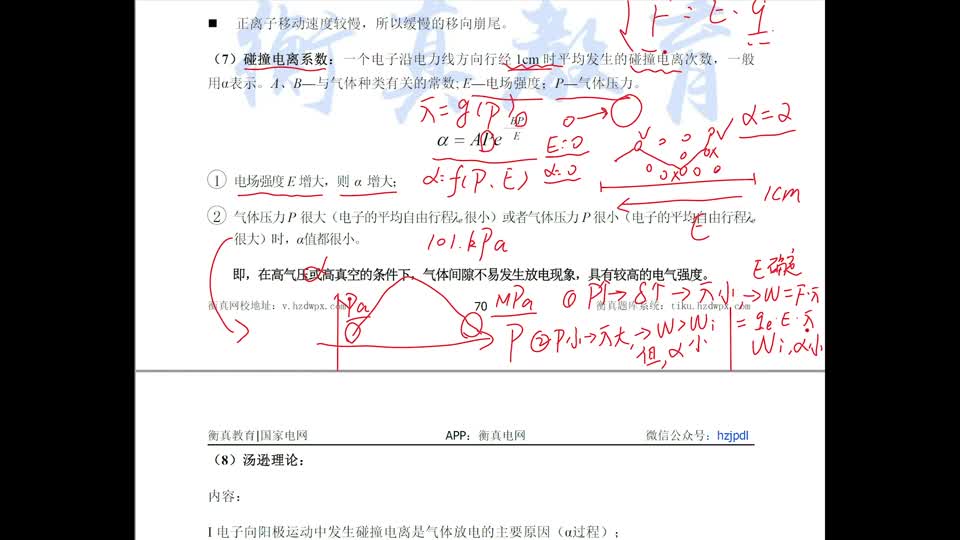 ■ 正离子移动速度较慢，所以缓慢的移向崩尾。
F = E · q
（7）碰撞电离系数：一个电子沿电力线方向行经 1cm 时平均发生的碰撞电离次数，一般
用α表示。A、B—与气体种类有关的常数; E—电场强度；P—气体压力。
α = APe^{-BP/E}
E=0
α=2
α=f(P、E)
α=0
1cm
E
① 电场强度 E 增大，则 α 增大;
② 气体压力 P 很大（电子的平均自由行程λ很小）或者气体压力 P 很小（电子的平均自由行程λ
很大）时，α值都很小。
101.kPa
即，在高气压或高真空的条件下，气体间隙不易发生放电现象，具有较高的电气强度。
α
E确定
衡真网校地址：v.hzdwpx.com
70
衡真题库系统：tiku.hzdwpx.com
Pa
MPa
P
① P↑→δ↑→
小→W=F·
=qe·E·
② P小→
大,→W>Wi
但,α小
Wi,α小
衡真教育|国家电网
APP：衡真电网
微信公众号：hzjpdl
（8）汤逊理论：
内容：
I 电子向阳极运动中发生碰撞电离是气体放电的主要原因（α过程）；